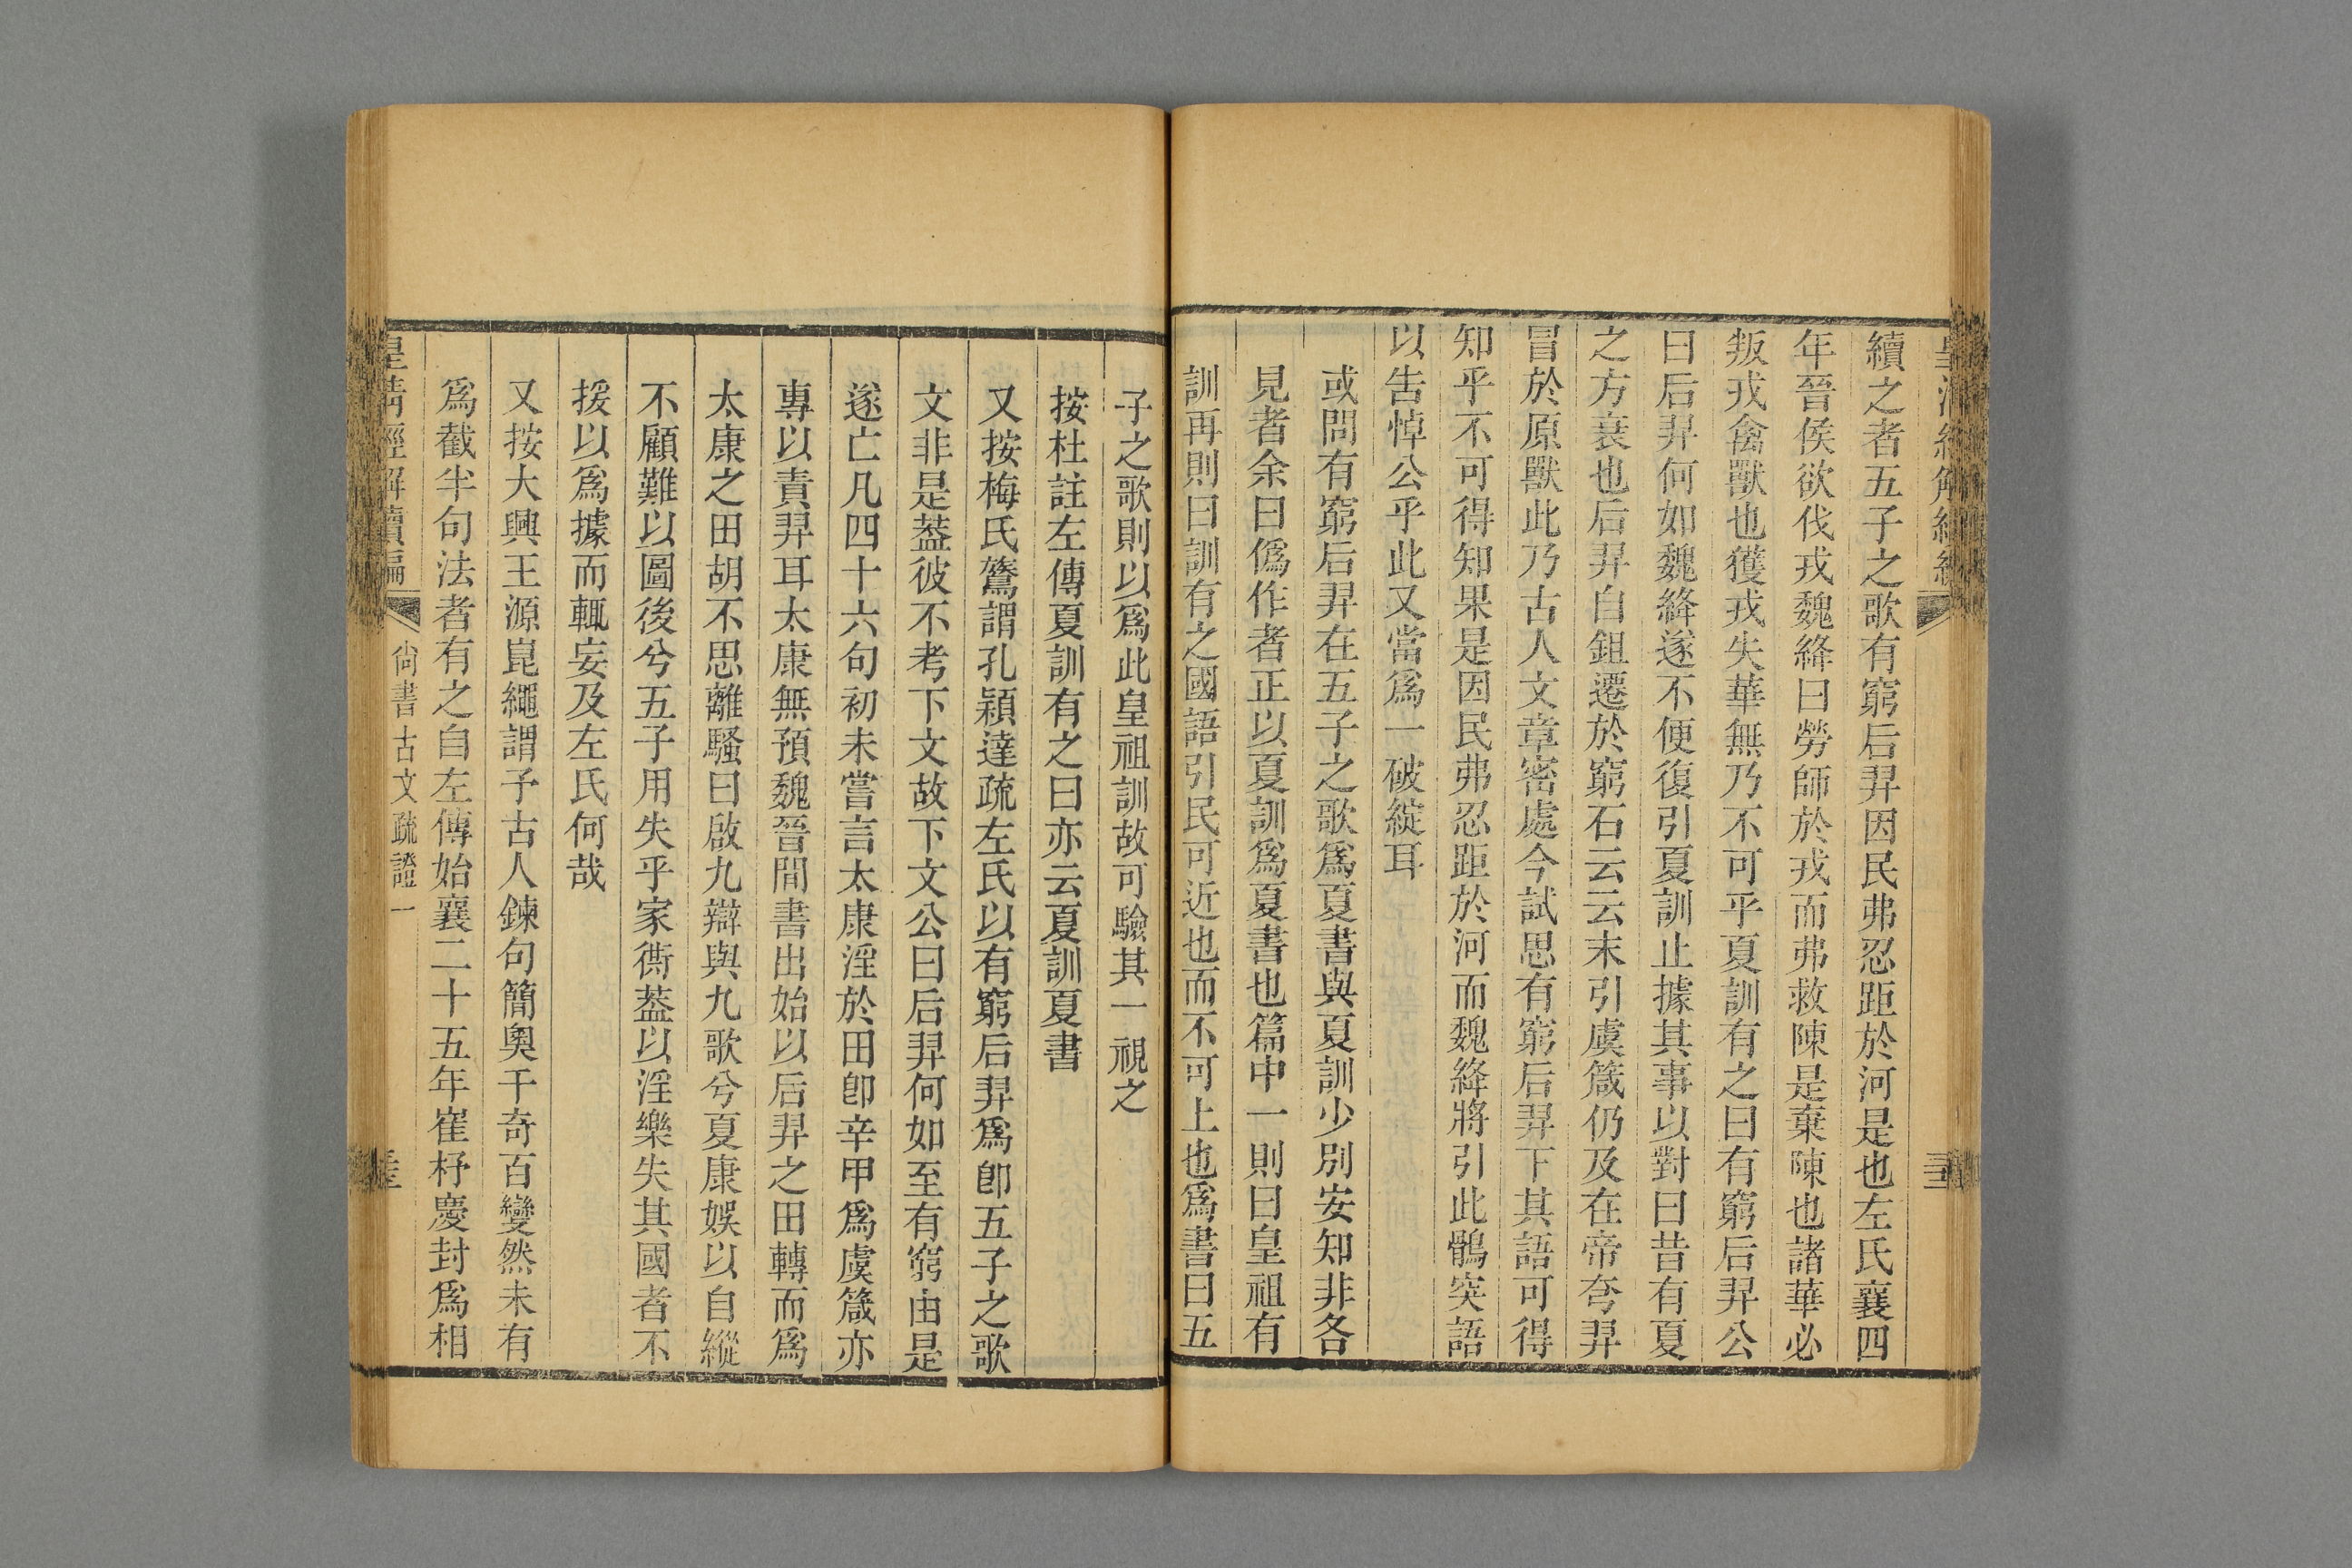 續之者五子之歌有窮后羿因民弗忍距於河是也左氏襄四
年晉侯欲伐戎魏絳曰勞師於戎而弗救陳是棄陳也諸華必
叛戎禽獸也獲戎失華無乃不可乎夏訓有之曰有窮后羿公
曰后羿何如魏絳遂不便復引夏訓止據其事以對曰昔有夏
之方衰也后羿自鉏遷於窮石云云末引虞箴仍及在帝夸羿
冒於原獸此乃古人文章密處今試思有窮后羿下其語可得
知乎不可得知果是因民弗忍距於河而魏絳將引此鶻突語
以告悼公乎此又當爲一破綻耳
或問有窮后羿在五子之歌爲夏書與夏訓少別安知非各
見者余曰僞作者正以夏訓爲夏書也篇中一則曰皇祖有
訓再則曰訓有之國語引民可近也而不可上也爲書曰五
子之歌則以爲此皇祖訓故可驗其一視之
按杜註左傳夏訓有之曰亦云夏訓夏書
又按梅氏鷟謂孔穎達疏左氏以有窮后羿爲卽五子之歌
文非是葢彼不考下文故下文公曰后羿何如至有窮由是
遂亡凡四十六句初未嘗言太康淫於田卽辛甲爲虞箴亦
專以責羿耳太康無預魏晉間書出始以后羿之田轉而爲
太康之田胡不思離騷曰啟九辯與九歌兮夏康娛以自縱
不顧難以圖後兮五子用失乎家衖葢以淫樂失其國者不
援以爲據而輒妄及左氏何哉
又按大興王源崑繩謂予古人鍊句簡奧千奇百變然未有
爲截半句法者有之自左傳始襄二十五年崔杼慶封爲相
皇清經解續編 尙書古文疏證一